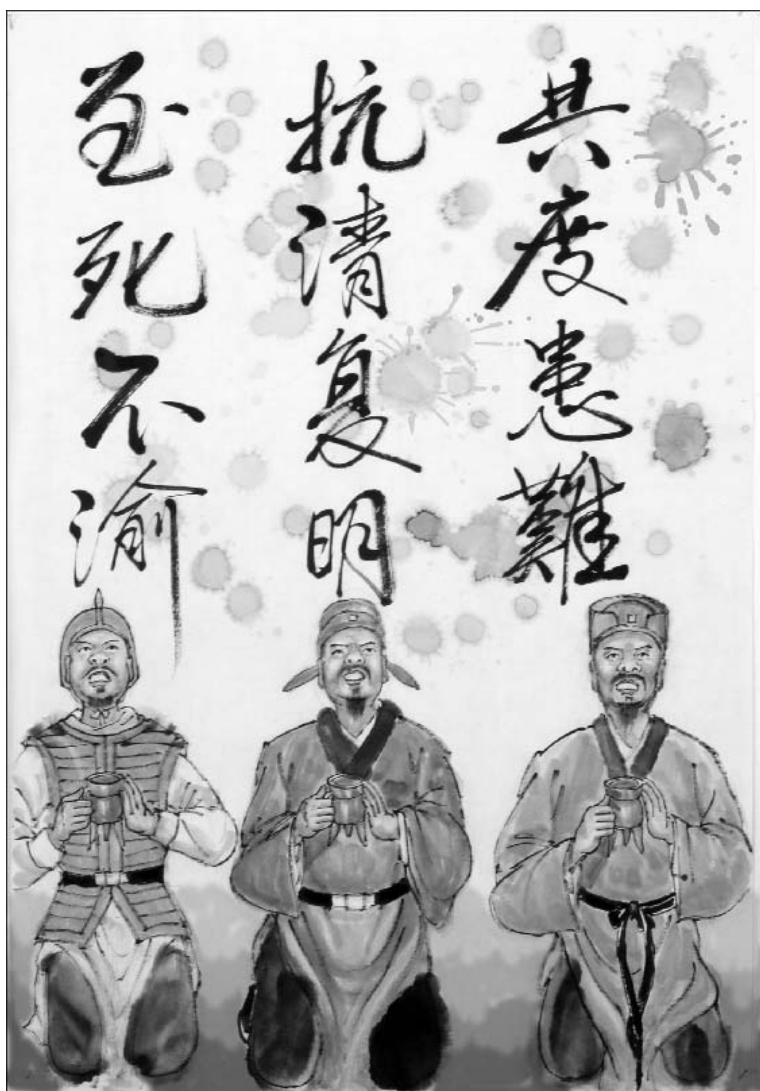 共度患難
抗清复明
至死不渝